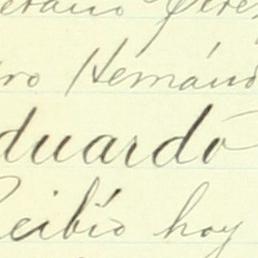 erano Pere
ro Hernánd
duardo
Recibío hoy